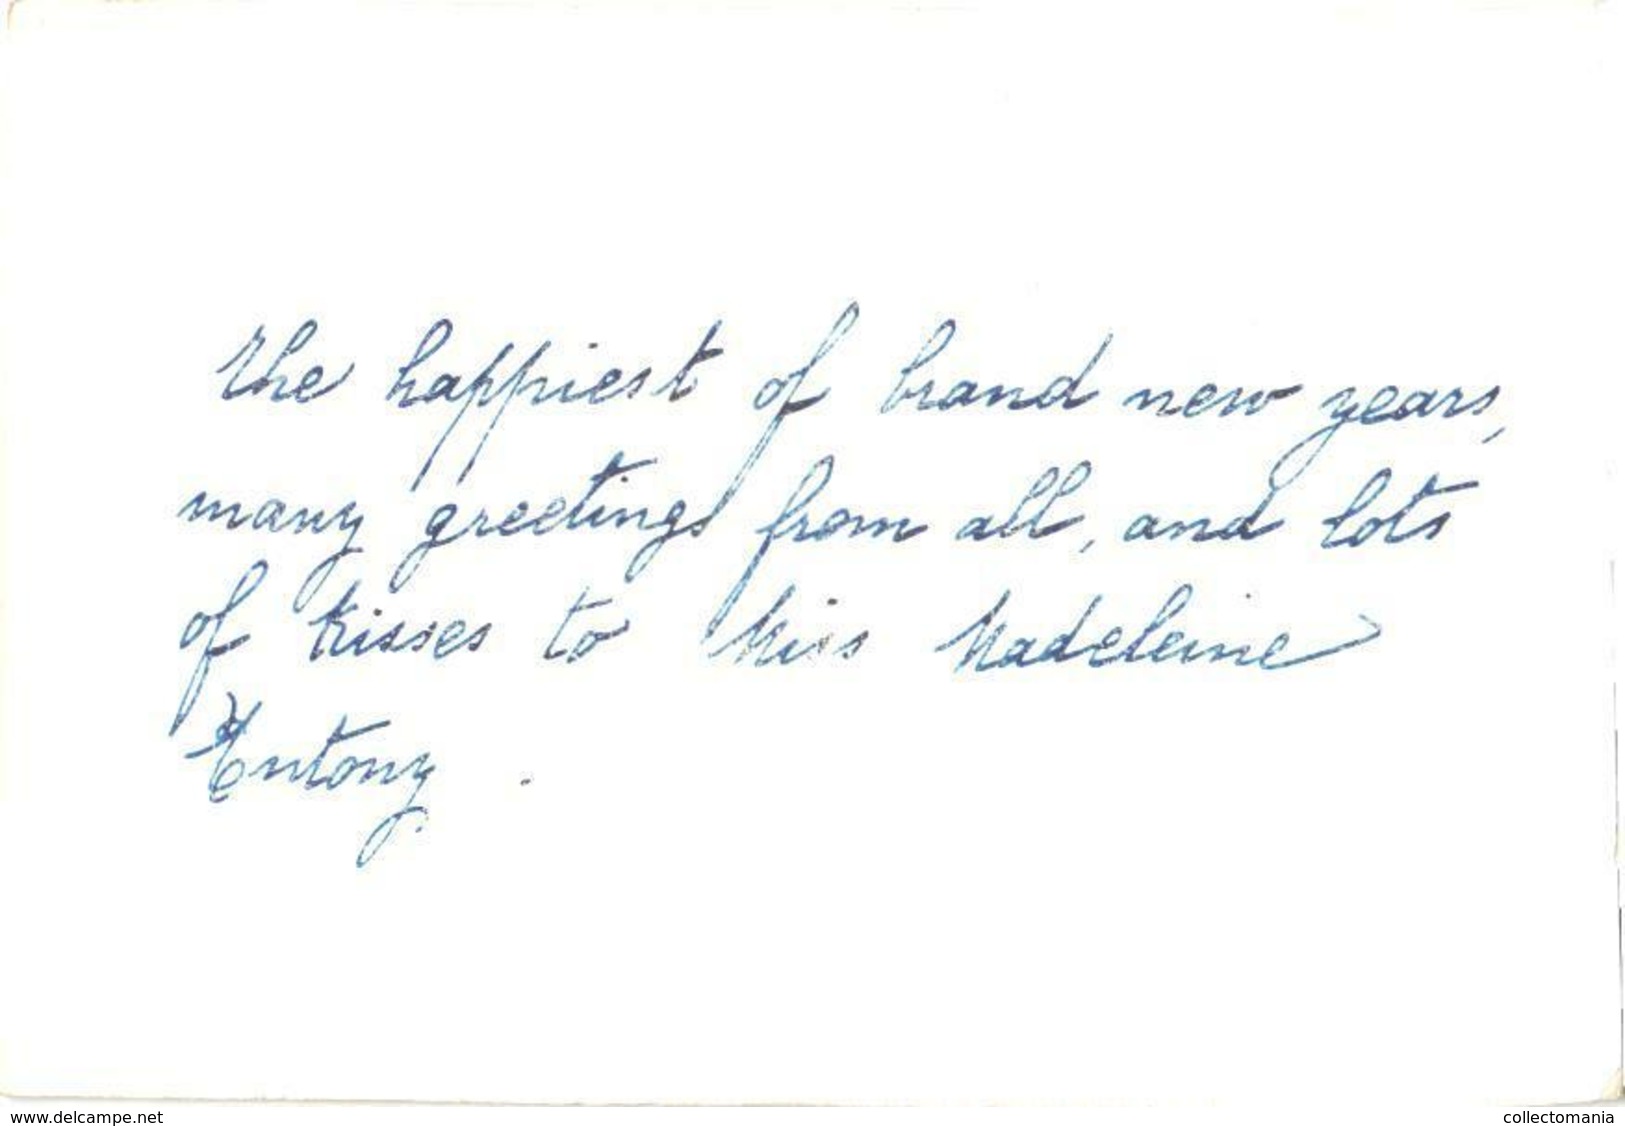 The happiest of brand new years,
many greetings from all, and lots
of kisses to Miss Madeleine
Entony.
www.delcampe.net
collectomania